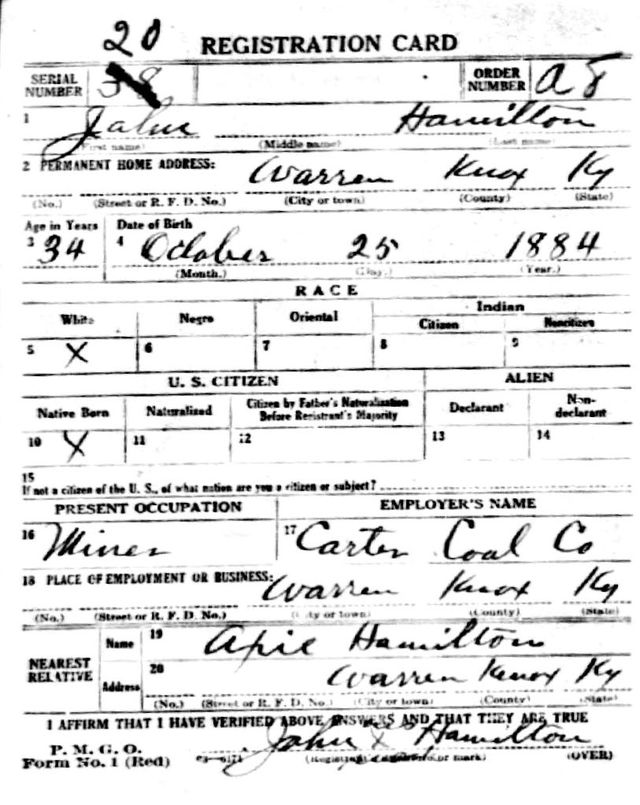 20
REGISTRATION CARD
SERIAL NUMBER 58 ORDER NUMBER A8
1 John Hamilton
(First name) (Middle name) (Last name)
2 PERMANENT HOME ADDRESS: Warren Knox Ky
(No.) (Street or R. F. D. No.) (City or town) (County) (State)
Age in Years Date of Birth
3 34 4 October 25 1884
(Month.) (Day.) (Year.)
RACE
White Negro Oriental Indian
Citizen Noncitizen
5 X 6 7 8 9
U. S. CITIZEN ALIEN
Native Born Naturalized Citizen by Father's Naturalization Before Registrant's Majority Declarant Non-declarant
10 X 11 12 13 14
15
If not a citizen of the U. S., of what nation are you a citizen or subject?
PRESENT OCCUPATION EMPLOYER'S NAME
16 Miner 17 Carter Coal Co
18 PLACE OF EMPLOYMENT OR BUSINESS: Warren Knox Ky
(No.) (Street or R. F. D. No.) (City or town) (County) (State)
NEAREST RELATIVE Name 19 Apie Hamilton
Address 20 Warren Knox Ky
(No.) (Street or R. F. D. No.) (City or town) (County) (State)
I AFFIRM THAT I HAVE VERIFIED ABOVE ANSWERS AND THAT THEY ARE TRUE
P. M. G. O. John X Hamilton
Form No. 1 (Red) (Registrant's signature or mark) (OVER)